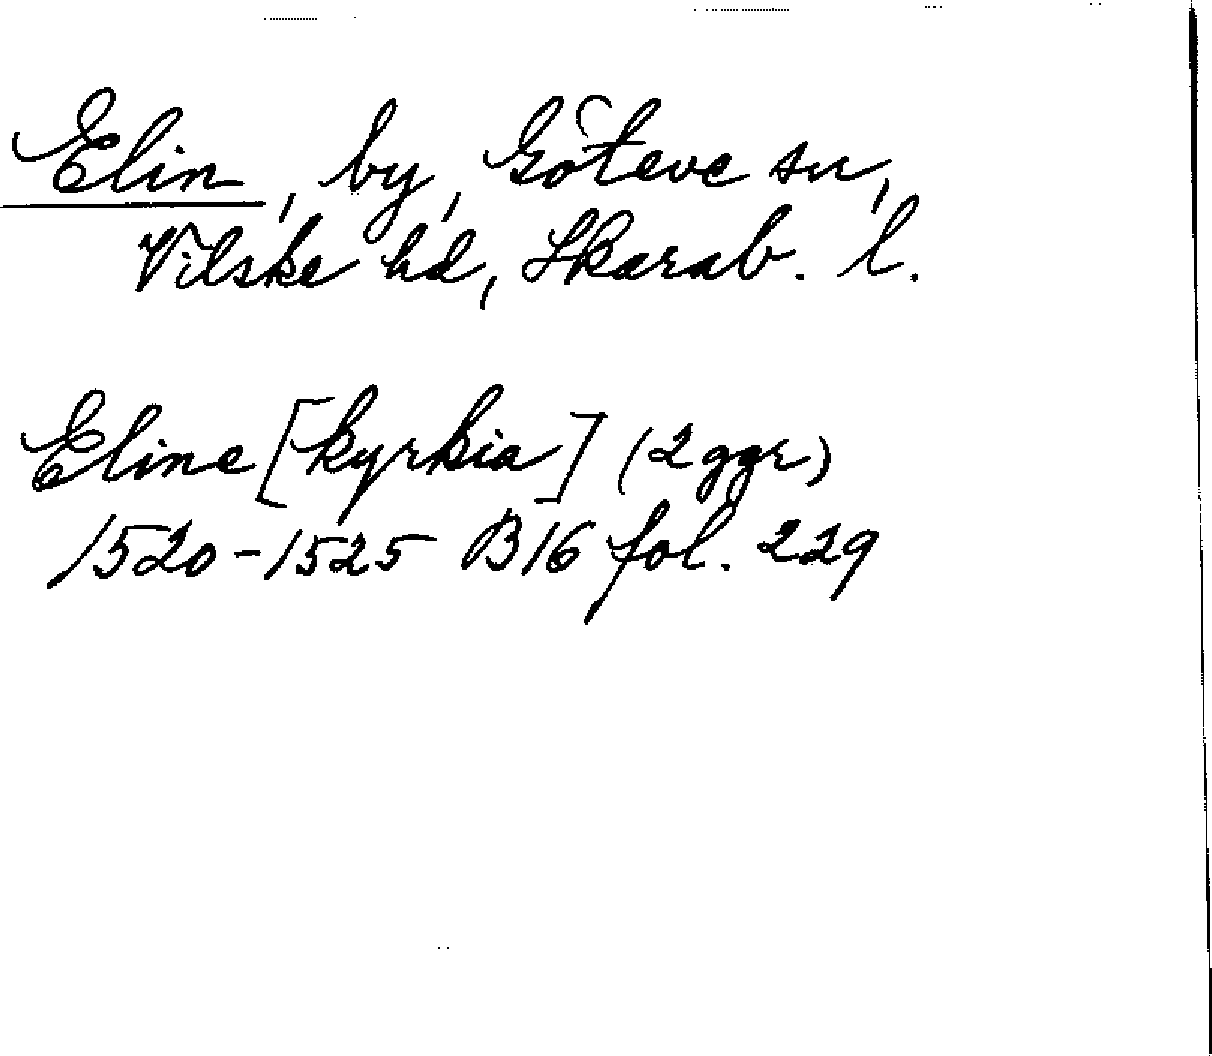 Elin, by, Göteve sn,
Vilske hd, Skarab. l.
Eline [kyrkia] (2 ggr)
1520-1525 B16 fol. 229